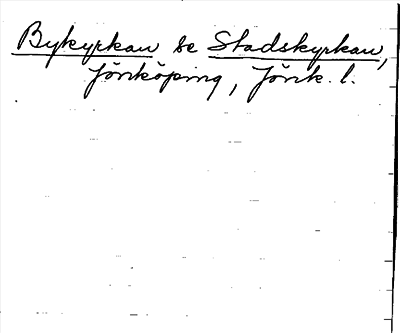 Bykyrkan se Stadskyrkan,
Jönköping, Jönk. l.